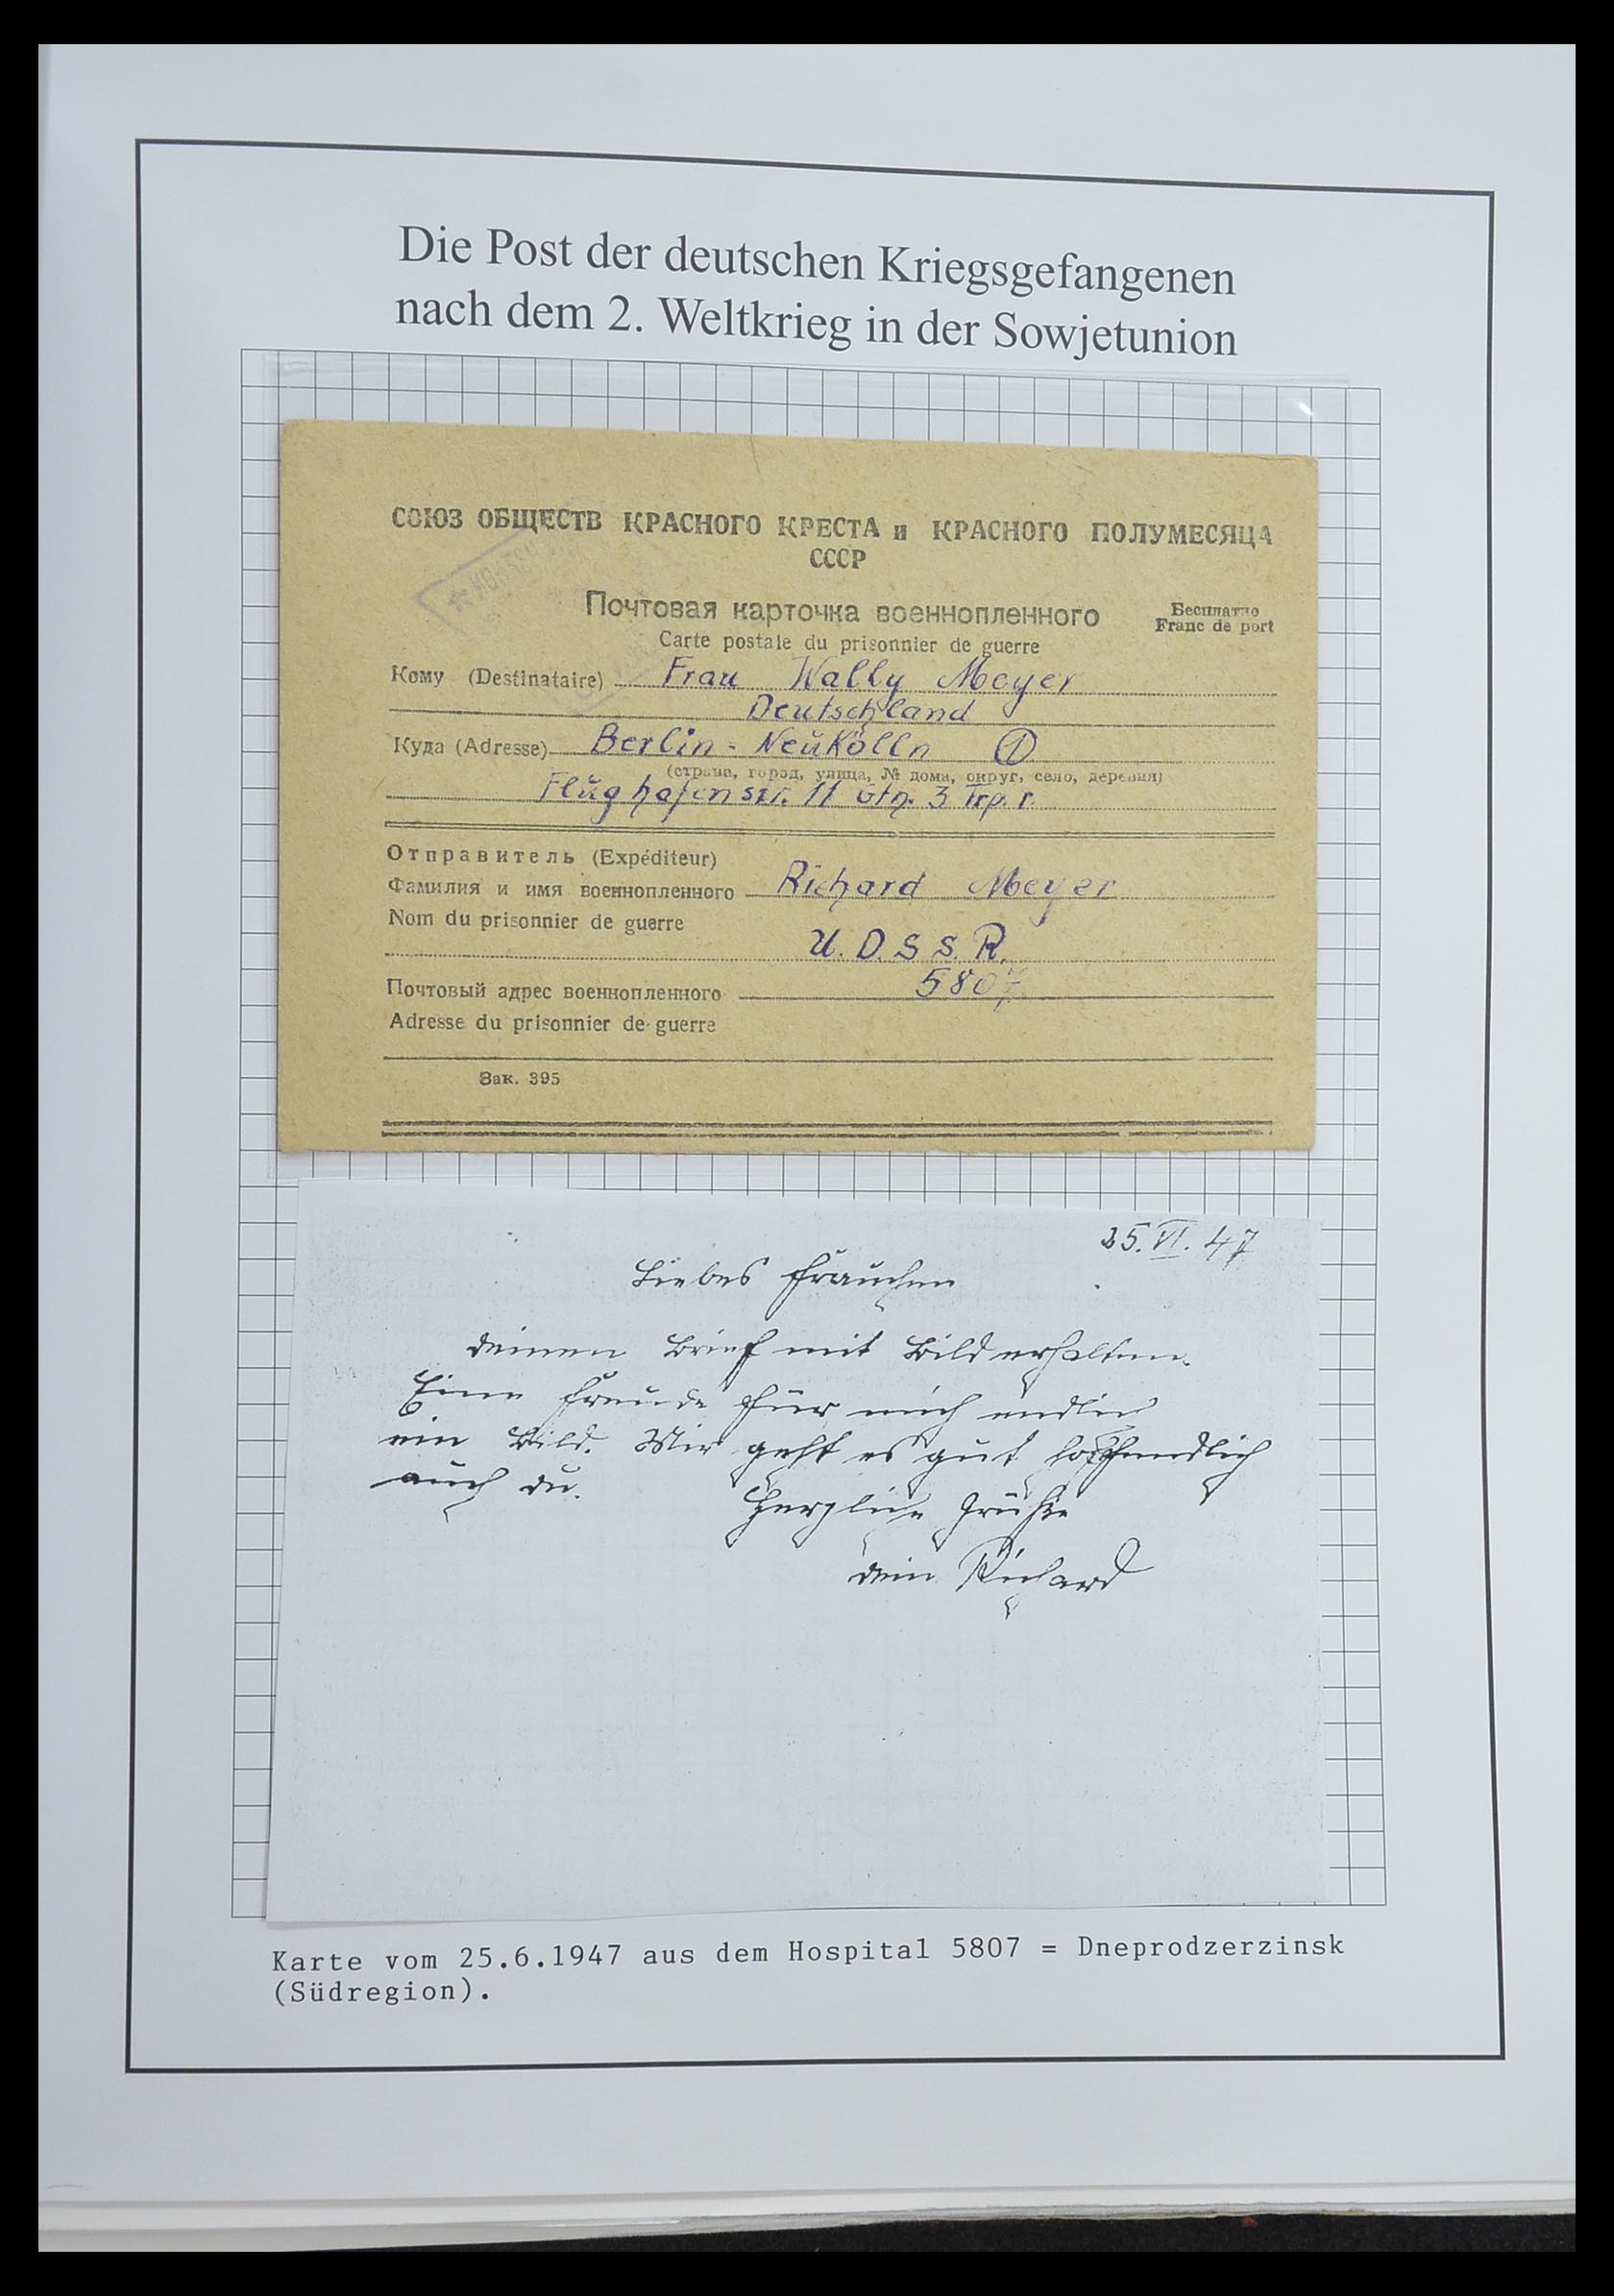 Die Post der deutschen Kriegsgefangenen
nach dem 2. Weltkrieg in der Sowjetunion
СОЮЗ ОБЩЕСТВ КРАСНОГО КРЕСТА и КРАСНОГО ПОЛУМЕСЯЦА
СССР
Почтовая карточка военнопленного
Бесплатно
Carte postale du prisonnier de guerre
Franc de port
Кому (Destinataire) Frau Wally Meyer
Deutschland
Куда (Adresse) Berlin - Neukölln 1
(страна, город, улица, № дома, округ, село, деревня)
Flughafenstr. 11 Gth. 3 Trp. r.
Отправитель (Expéditeur)
Фамилия и имя военнопленного Richard Meyer
Nom du prisonnier de guerre
U. D. S. S. R.
Почтовый адрес военнопленного 5807
Adresse du prisonnier de guerre
Зак. 395
25. VI. 47
Liebes Frauchen
deinen Brief mit Bild erhalten.
Eine Freude für mich endlich
ein Bild. Mir geht es gut hoffendlich
auch du.
Herzliche Grüße
dein Richard
Karte vom 25.6.1947 aus dem Hospital 5807 = Dneprodzerzinsk
(Südregion).